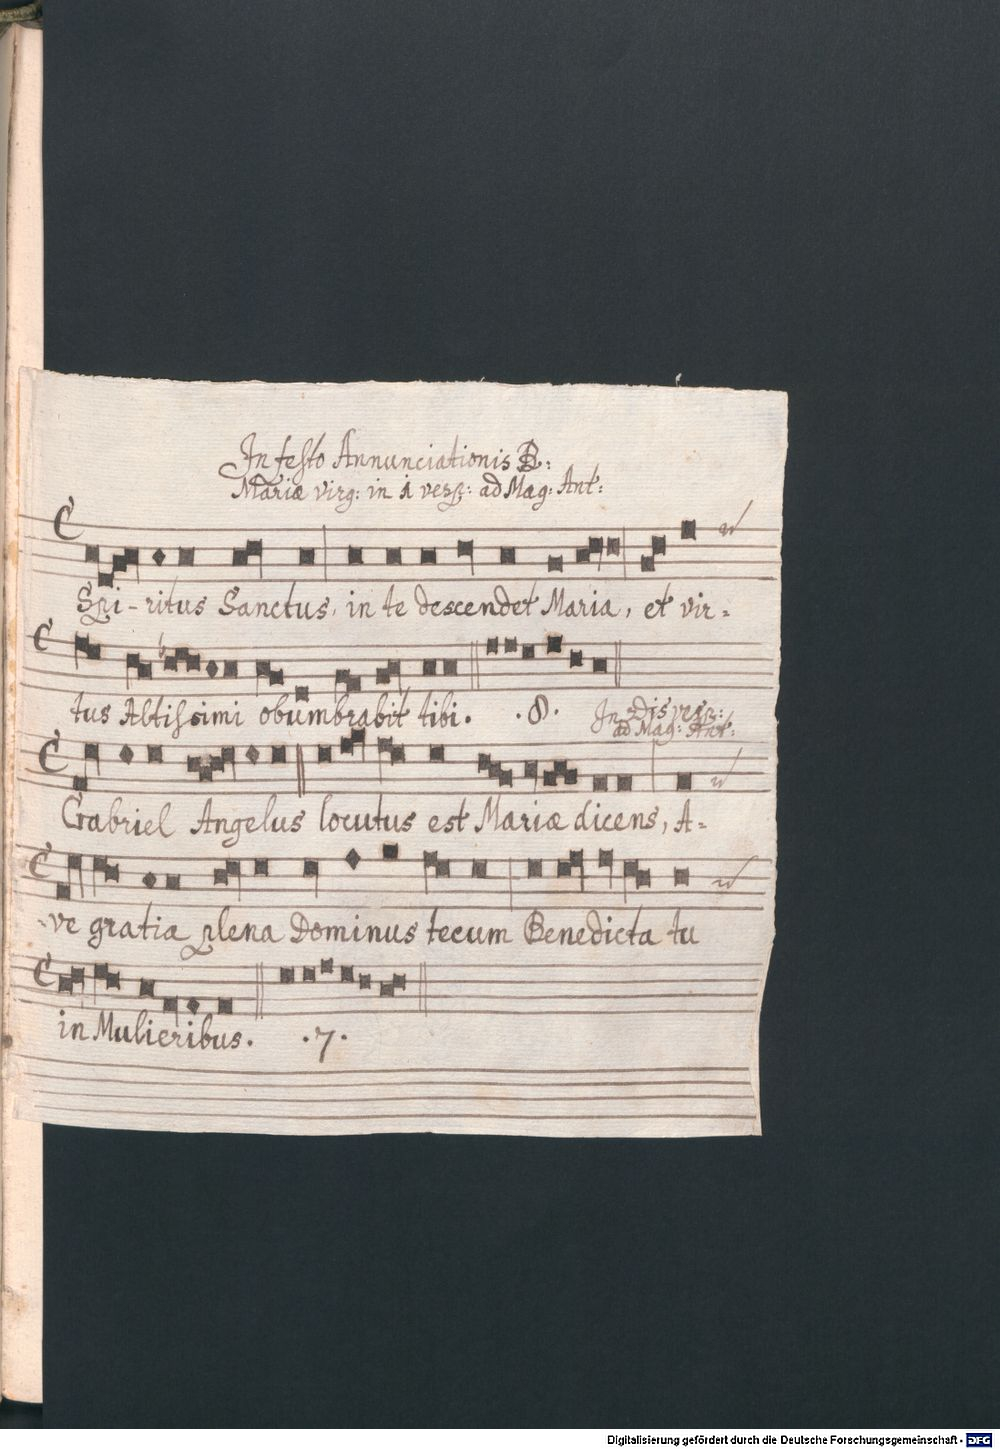 In festo Annunciationis B:
Mariæ virg: in 1 vesp: ad Mag: Ant:
Spi-ritus Sanctus, in te descendet Maria, et vir-
tus Altissimi obumbrabit tibi. .8. In 2dis vesp:
ad Mag: Ant:
Gabriel Angelus locutus est Mariæ dicens, A-
-ve gratia plena Dominus tecum Benedicta tu
in Mulieribus. .7.
Digitalisierung gefördert durch die Deutsche Forschungsgemeinschaft - DFG